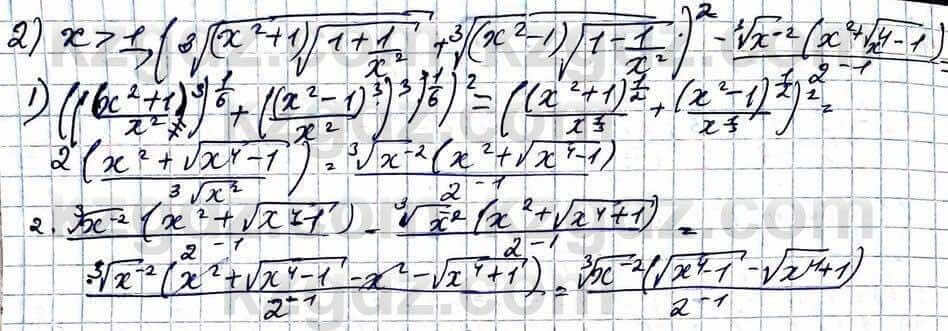 2) x > 1, (∛((x²+1)√(1+1/x²)) + ∛((x²-1)√(1-1/x²)))² - ∛x⁻²(x²+√x⁴-1)/2⁻¹ =
1) (((x²+1)³/x²)^(1/6) + ((x²-1)³/x²)^(1/6))² = ((x²+1)^(1/2)/x^(1/3) + (x²-1)^(1/2)/x^(1/3))² =
2(x²+√(x⁴-1)/∛x²) = ∛x⁻²(x²+√(x⁴-1))/2⁻¹
2. ∛x⁻²(x²+√(x⁴-1))/2⁻¹ - ∛x⁻²(x²+√(x⁴+1))/2⁻¹ =
∛x⁻²(x²+√(x⁴-1)-x²-√(x⁴+1))/2⁻¹ = ∛x⁻²(√(x⁴-1)-√(x⁴+1))/2⁻¹